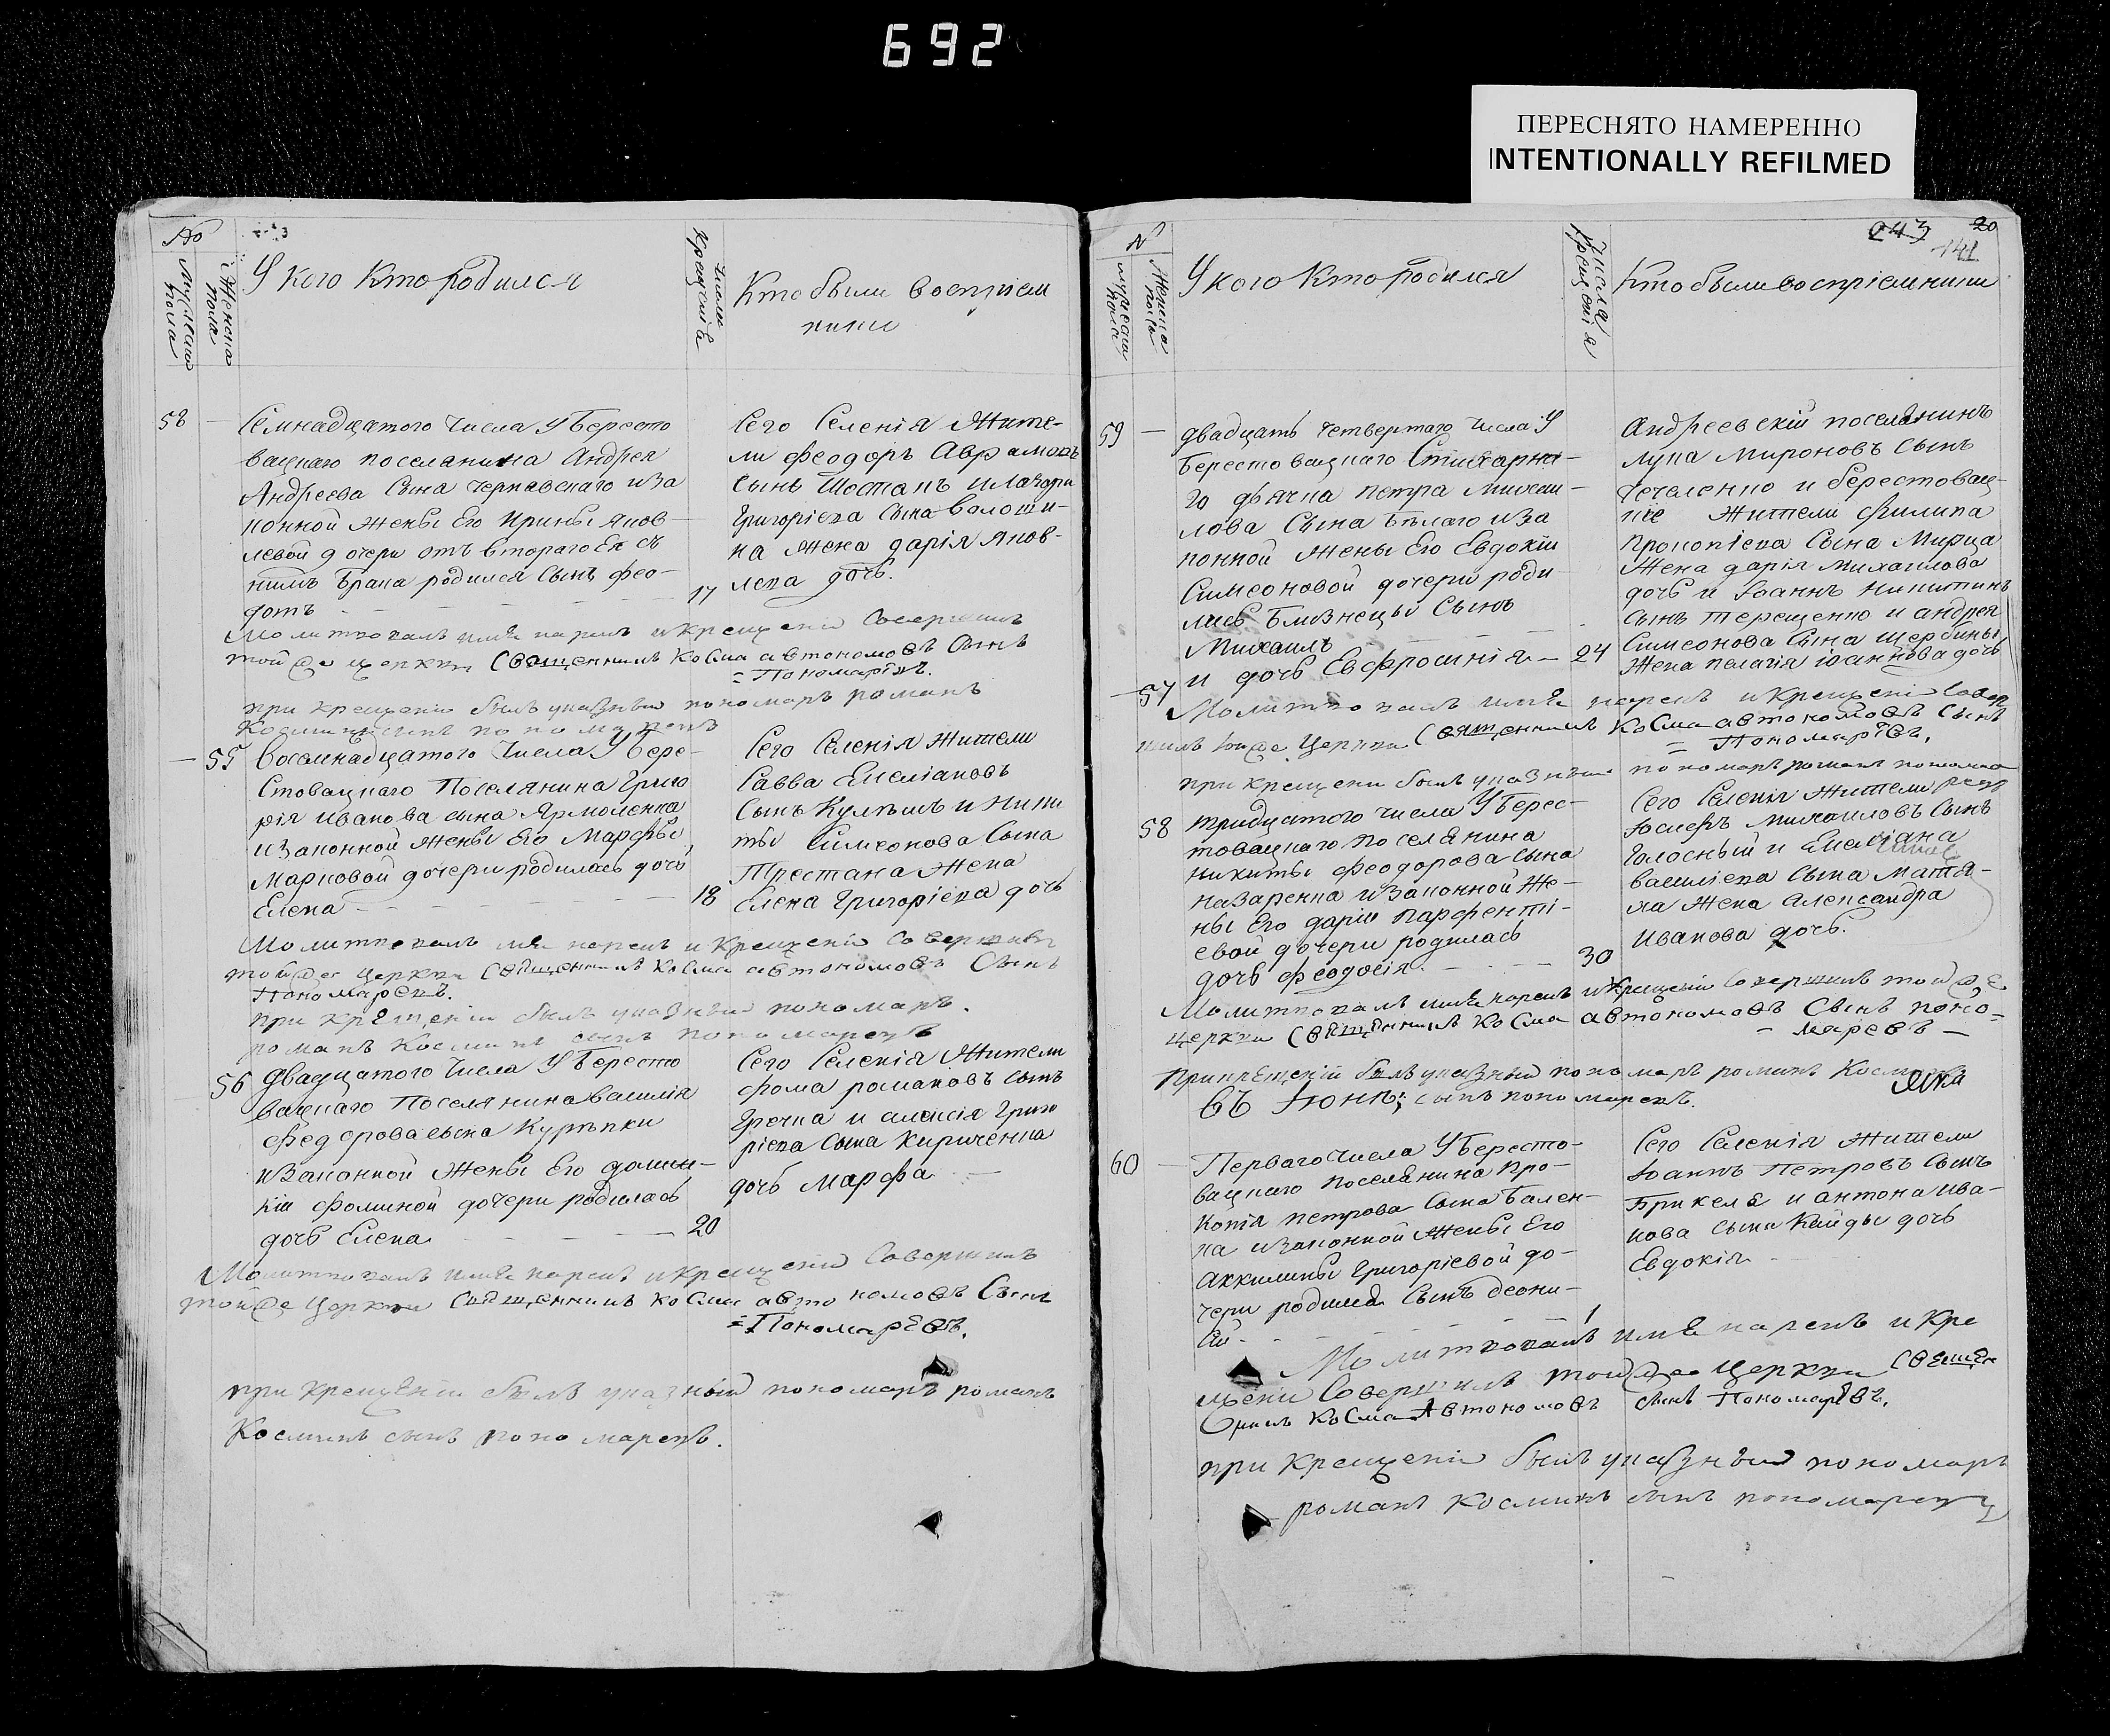 692
ПЕРЕСНЯТО НАМЕРЕННО
INTENTIONALLY REFILMED
No
Мужеска пола
Женска пола
У кого кто родился
Число крещенія
Кто были воспріем
ники
58
Семнадцатого числа у Бересто
вацкаго поселянина Андрея
Андреева сына Чернявскаго иза
конной жены его Ирины Яков
левой дочери отъ втораго ея съ
нимъ брака родился сынъ Фео-
дотъ
17
Сего селенія жите-
ли Феодоръ Аврамовъ
сынъ Шостакъ и Лазаря
Григоріева сына Волоши-
на жена Дарія Яков-
лева дочь.
Молитвовалъ имя нарекъ и крещеніе совершилъ
тойже церкви священникъ Косма Автономовъ сынъ
= Пономаревъ.
при крещеніи былъ указный пономаръ Романъ
Косминъ сынъ пономаревъ
55
Восемнадцатого числа у Бере-
стовацкаго поселянина Григо
рія Иванова сына Ярмоленка
и законной жены его Марфы
Марковой дочери родилась дочь
Елена
18
Сего селенія жители
Савва Емеліановъ
сынъ Кулѣшъ и Ники
ты Симеонова сына
Трестана жена
Елена Григоріева дочь
Молитвовалъ имя нарекъ и крещеніе совершивъ
тойже церкви священникъ Косма Автономовъ сынъ
Пономаревъ.
при крещеніи былъ указный пономаръ.
Романъ Косминъ сынъ пономаревъ
56
Двадцатого числа у Бересто
вацкаго поселянина Василія
Федорова сына Курѣпки
и законной жены его Домни-
кіи Фоминой дочери родилась
дочь Елена
20
Сего селенія жители
Фома Романовъ сынъ
Гречка и Алексія Григо
ріева сына Кириченка
дочь Марфа
Молитвовалъ имя нарекъ и крещеніе совершилъ
тойже церкви священникъ Косма Автономовъ сынъ
= Пономаревъ.
при крещеніи былъ указный пономаръ Романъ
Косминъ сынъ пономаревъ.
243
20
141
N
Мужеска пола
Женска пола
У кого кто родился
Числа крещенія
Кто были воспріемники
59
двадцать четвертаго числа у
Берестовацкаго Стихарна-
го дьячка Петра Михаи-
лова сына Бѣлаго иза
конной жены его Евдокіи
Симеоновой дочери роди
лись близнецы сынъ
Михаилъ
57
и дочь Евфросинія
24
Андреевскій поселянинъ
Лука Мироновъ сынъ
Чечеленко и Берестовац-
кіе жители Филипа
Прокопіева сына Мирца
жена Дарія Михаилова
дочь и Іоаннъ Никитинъ
сынъ Терещенко и Андрея
Симеонова сына Щербины
жена Пелагія Іоаннова дочь
Молитвовалъ имя нарекъ и крещеніе совер
шилъ тойже церкви священникъ Косма Автономовъ сынъ
= Пономаревъ.
при крещени былъ указный пономаръ Романъ понома
ревъ
58
Тридцатого числа у Берес-
товацкаго поселянина
Никиты Феодорова сына
Назаренка и законной же-
ны его Даріи Парфенті-
евой дочери родилась
дочь Феодосія.
30
Сего селенія жители
Іосифъ Михаиловъ сынъ
Голосный и Емеліана
Василіева сына
жена Александра
Иванова дочь.
Молитвовалъ имя нарекъ и крещеніе совершилъ тойже
церкви священникъ Косма Автономовъ сынъ Поно=
- маревъ -
При крещеній былъ указный пономаръ Романъ Косминъ
Въ Іюнѣ; сынъ пономаревъ.
60
Перваго числа у Бересто-
вацкаго поселянина Про-
копія Петрова сына Бален-
ка и законной жены его
Аккилины Григоріевой до-
чери родился сынъ Деони-
сій.
1
Сего селенія жители
Іоаннъ Петровъ сынъ
Брикеля и Антона Ива-
нова сына Кайды дочь
Евдокія
Молитвовалъ имя нарекъ и кре
щени совершилъ тойже церкви священ
никъ Косма Автономовъ сынъ Пономаревъ.
при крещеніи былъ указный пономаръ
Романъ Косминъ сынъ пономаревъ